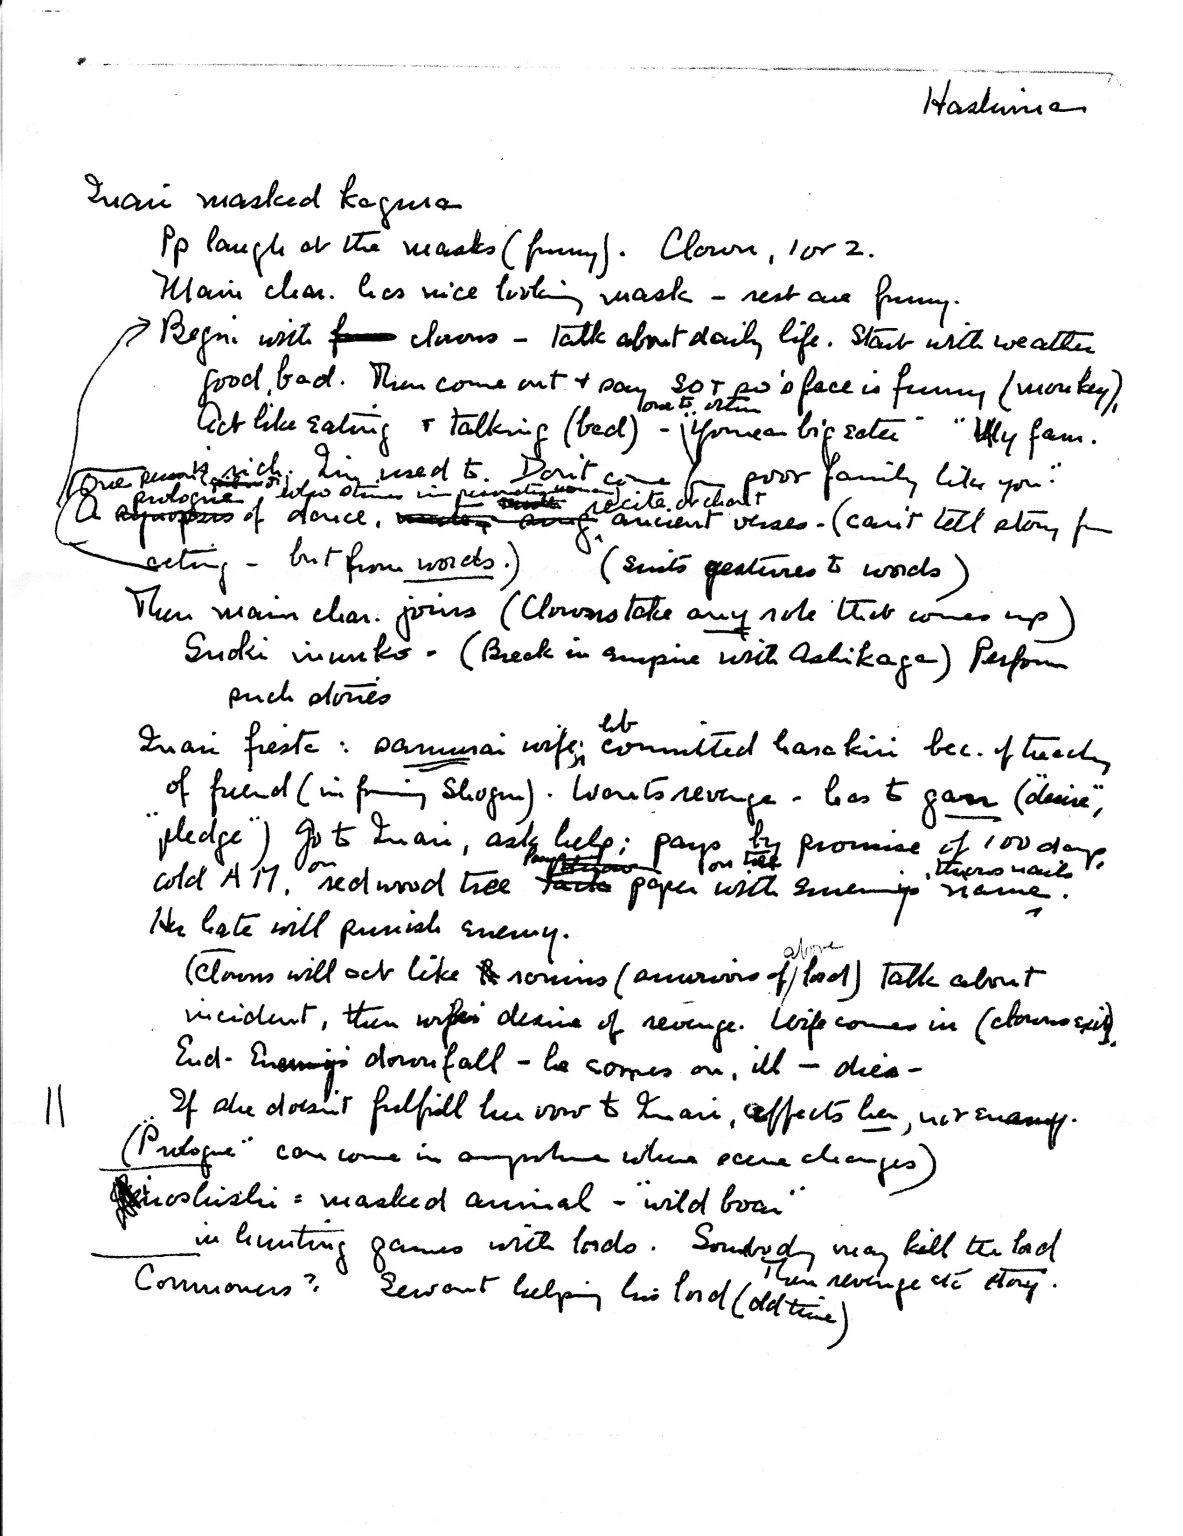 Hashima
Inari masked kagura
Pp laugh at the masks (funny). Clown, 1 or 2.
Main char. has nice looking mask - rest are funny.
Begin with clowns - talk about daily life. Start with weather
good, bad. Then come out + say so + so's face is funny (monkey),
Act like eating + talking (bad) - one to other "You're a big eater" "My fam.
is rich. I'm used to. Don't come fr poor family like you."
One person
prologue who stands
A of dance, recite or chant ancient verses - (can't tell story fr
acting - but from words.) (suits gestures to words)
Then main char. joins (Clowns take any role that comes up)
(Break in empire with Ashikaga) Perform
such stories
Inari fiesta: samurai wife; hb committed harakiri bec. of treachy
of friend (in fr Shogun). Wants revenge - has to gan ("desire",
"pledge") Go to Inari, ask help; pays by promise of 100 days,
cold AM, on redwood tree paper with enemy's name, throws nails.
Her hate will punish enemy.
(Clowns will act like ronins (survivors of above lord) talk about
incident, then wife's desire of revenge. Wife comes in (clowns exit).
End - Enemy's downfall - he comes on, ill - dies -
If she doesn't fulfill her vow to Inari, affects her, not enemy.
("Prologue" can come in anywhere where scene changes)
inoshishi = masked animal - "wild boar"
in hunting games with lords. Somebody may kill the lord
Then revenge etc story.
Commoners? Servant helping his lord (old time)